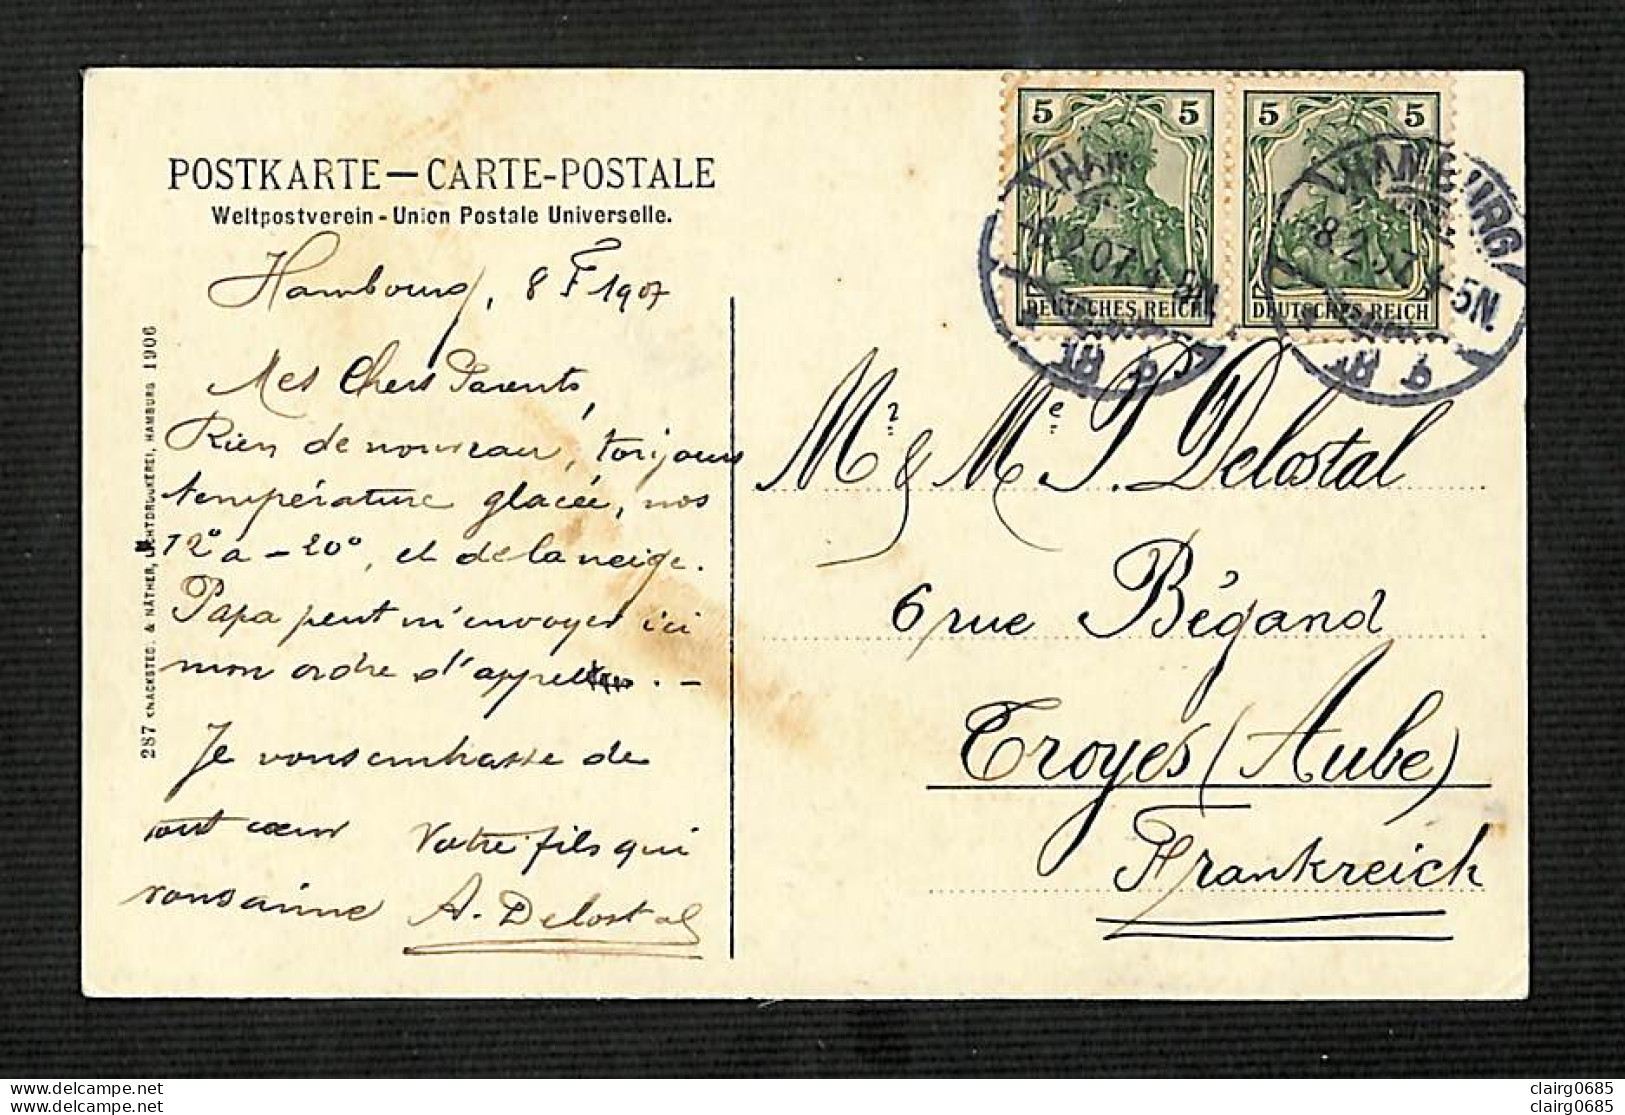 POSTKARTE — CARTE-POSTALE
Weltpostverein - Union Postale Universelle.
Hambourg, 8 F 1907
Mes Chers Parents,
Rien de nouveau, toujours
température glacée, nos
12° a - 20°, et de la neige.
Papa peut m'envoyer ici
mon ordre d'appel. -
Je vous embrasse de
tout cœur Votre fils qui
vous aime A. Delostal
287 KNACKSTEDT & NÄTHER, LICHTDRUCKEREI, HAMBURG 1906
5 5
DEUTSCHES REICH
5 5
DEUTSCHES REICH
HAMBURG
8.2.07 4-5N.
HAMBURG
8.2.07 4-5N.
Mr & Me P. Delostal
6 rue Bégand
Troyes (Aube)
Frankreich
www.delcampe.net
www.delcampe.net
clairg0685
clairg0685